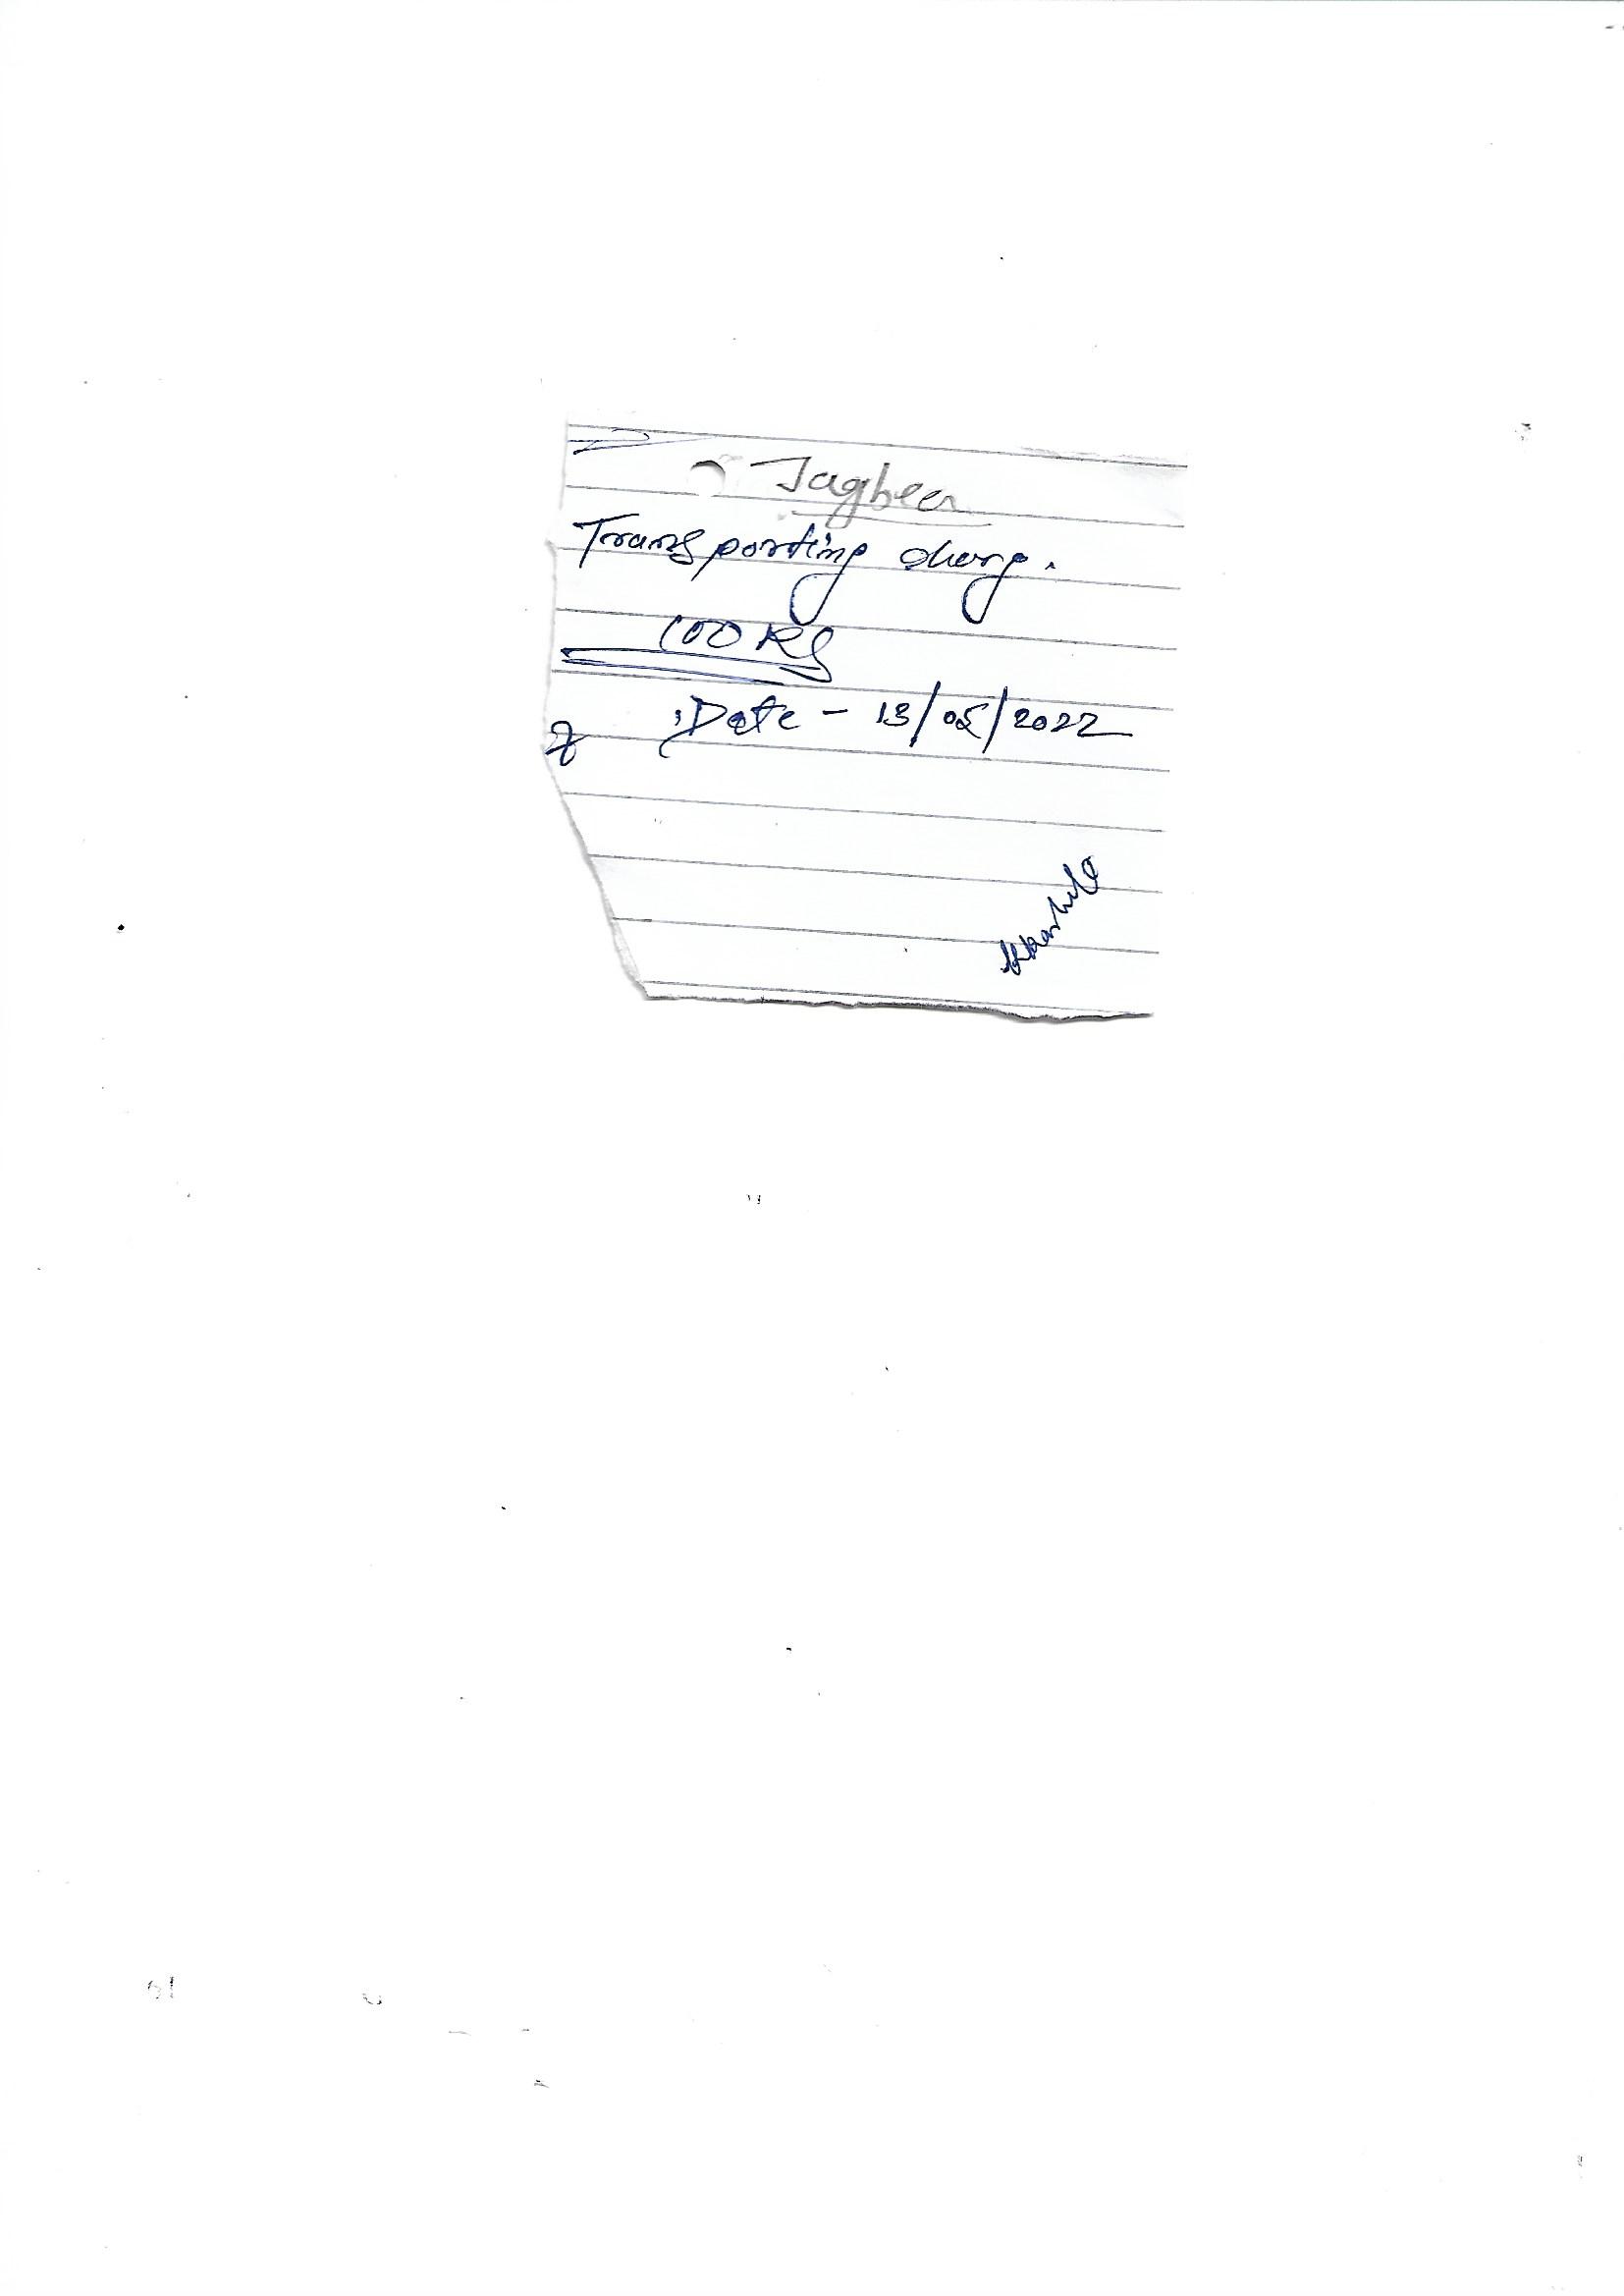 Jagbeer
Transporting charg.
100 Rs
Date - 13/05/2022